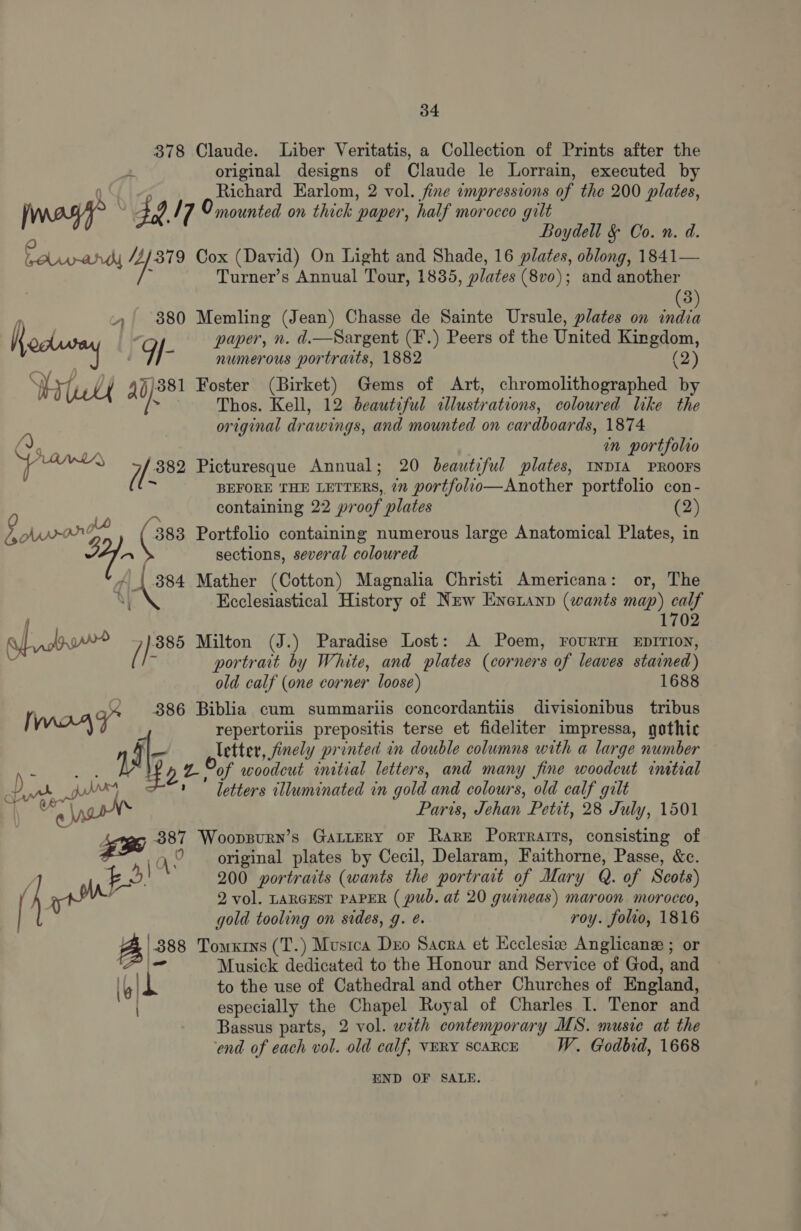 34
378 Claude. Liber Veritatis, a Collection of Prints after the
original designs of Claude le Lorrain, executed by
Richard Earlom, 2 vol. fine impressions of the 200 plates,
mounted on thick paper, half morocco gilt
Boydell & Co. n. d.
379 Cox (David) On Light and Shade, 16 plates, oblong, 1841—
Turner's Annual Tour, 1835, plates (8vo); and another
(3)
380 Memling (Jean) Chasse de Sainte Ursule, plates on india
Redway 9/- paper, n. d.—Sargent (F.) Peers of the United Kingdom,
numerous portraits, 1882 (2)
381 Foster (Birket) Gems of Art, chromolithographed by
Thos. Kell, 12 beautiful illustrations, coloured like the
original drawings, and mounted on cardboards, 1874
in portfolio
382 Picturesque Annual; 20 beautiful plates, INDIA PROOFS
BEFORE THE LETTERS, in portfolio—Another portfolio con-
containing 22 proof plates (2)
383 Portfolio containing numerous large Anatomical Plates, in
sections, several coloured
384 Mather (Cotton) Magnalia Christi Americana: or, The
Ecclesiastical History of NEW ENGLAND (wants map) calf
1702
385 Milton (J.) Paradise Lost: A Poem, FOURTH EDITION,
portrait by White, and plates (corners of leaves stained)
old calf (one corner loose) 1688
386 Biblia cum summariis concordantiis divisionibus tribus
repertoriis prepositis terse et fideliter impressa, gothic
letter, finely printed in double columns with a large number
of woodcut initial letters, and many fine woodcut initial
letters illuminated in gold and colours, old calf gilt
Paris, Jehan Petit, 28 July, 1501
387 WOODBURN'S GALLERY OF RARE PORTRAITS, consisting of
original plates by Cecil, Delaram, Faithorne, Passe, &c.
200 portraits (wants the portrait of Mary Q. of Scots)
2 vol. LARGEST PAPER (pub. at 20 guineas) maroon morocco,
gold tooling on sides, g. e. roy. folio, 1816
388 TOMKINS (T.) MUSICA DEO SACRA et Ecclesiæ Anglicanæ; or
Musick dedicated to the Honour and Service of God, and
to the use of Cathedral and other Churches of England,
especially the Chapel Royal of Charles I. Tenor and
Bassus parts, 2 vol. with contemporary MS. music at the
end of each vol. old calf, VERY SCARCE W. Godbid, 1668
END OF SALE.